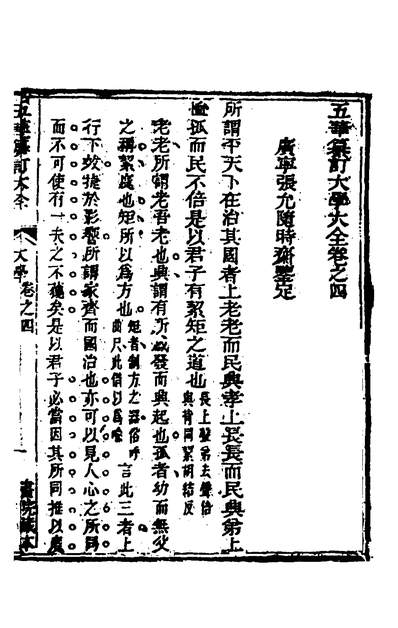 五華纂訂大學大全卷之四
廣寧張允隨時齋鑒定
所謂平天下在治其國者上老老而民興孝上長長而民興弟上
恤孤而民不倍是以君子有絜矩之道也長上聲弟去聲倍與背同絜胡結反
老老所謂老吾老也興謂有所感發而興起也孤者幼而無父
之稱絜度也矩所以為方也矩者制方之器俗呼曲尺此借以為喻言此三者上
行下效捷於影響所謂家齊而國治也亦可以見人心之所同
而不可使有一夫之不獲矣是以君子必當因其所同推以度
五華纂訂大全
大學卷之四
書院藏本